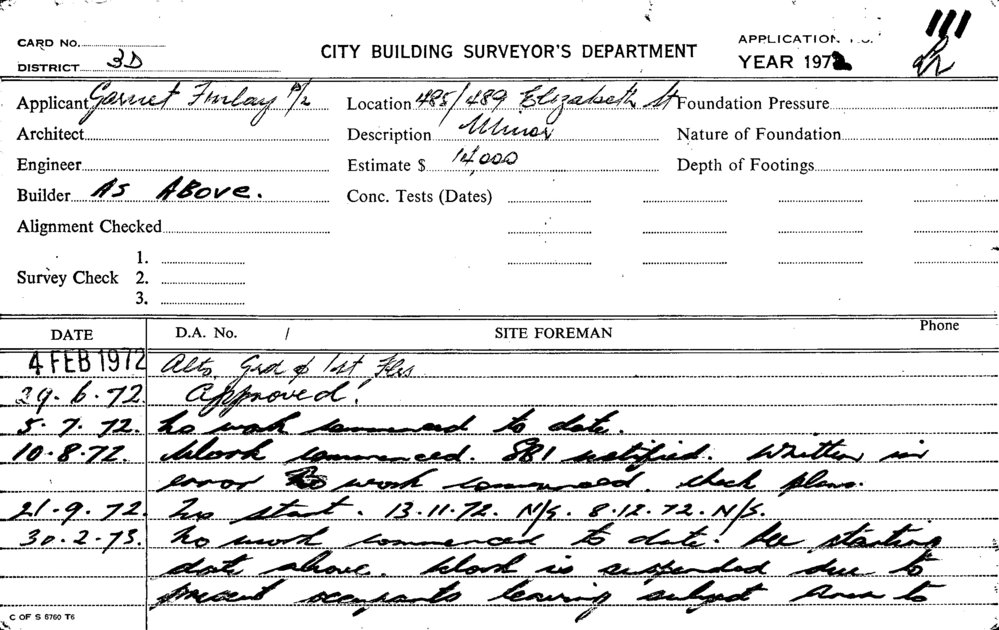 111
CARD No.
DISTRICT 3D
CITY BUILDING SURVEYOR'S DEPARTMENT
APPLICATION No.
YEAR 1972
Applicant Garnet Finlay P/L
Location 485/489 Elizabeth St
Foundation Pressure
Architect
Description Minor
Nature of Foundation
Engineer
Estimate $ 14,000
Depth of Footings
Builder As Above.
Conc. Tests (Dates)
Alignment Checked
Survey Check 1.
2.
3.
DATE D.A. No. / SITE FOREMAN Phone
4 FEB 1972 Alts Grd & 1st Flrs
29.6.72. Approved!
5.7.72. No work commenced to date.
10.8.72. Work commenced. SBI notified. Written in
error No work commenced. check plans.
21.9.72. No start. 13.11.72. N/S. 8.12.72. N/S.
30.2.73. No work commenced to date. See starting
date above. Work is suspended due to
present occupants leaving subject area to
C OF S 6760 T6